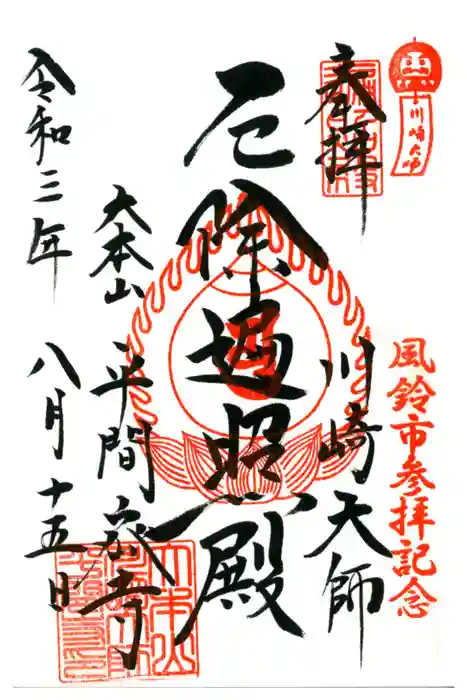 川崎大師
奉拝
風鈴市参拝記念
川崎天師
厄除遍照殿
大本山
平間寺
令和三年
八月十五日